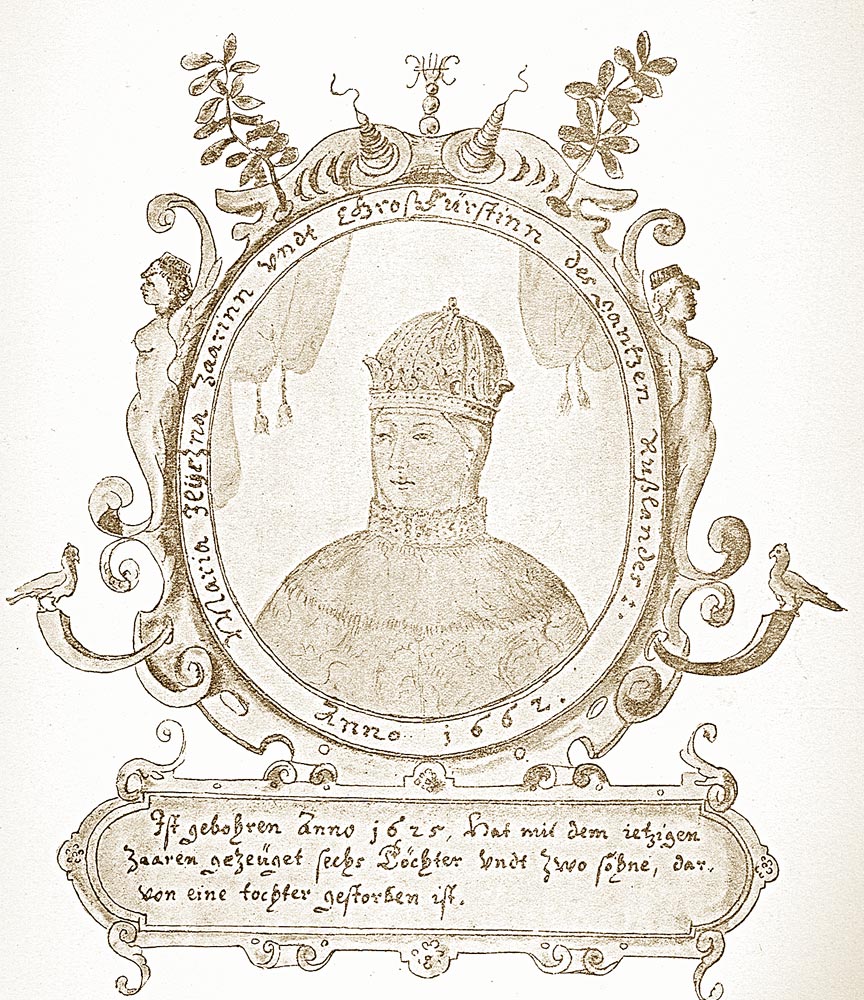 Maria Iliyezna Zaarinn vndt GrosFürstinn des gantzen Rußlandes:.
Anno 1662.
Ist gebohren Anno 1625, Hat mit dem ietzigen
Zaaren gezeüget sechs Töchter vndt zwo söhne, dar-
von eine tochter gestorben ist.